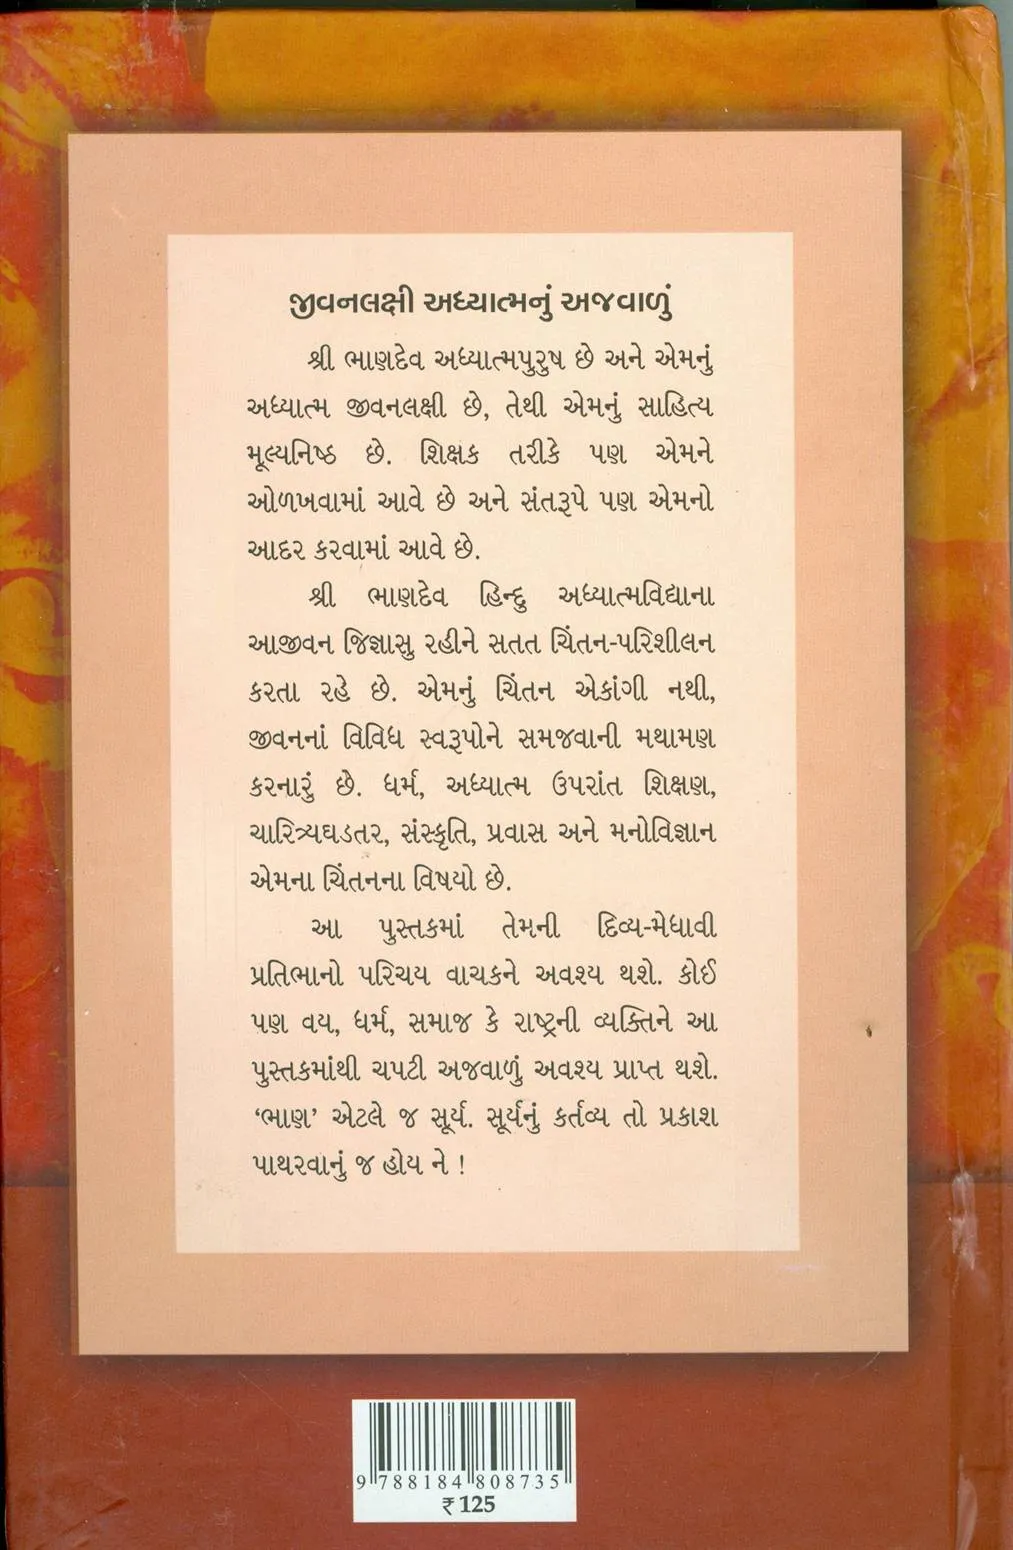 જીવનલક્ષી અધ્યાત્મનું અજવાળું
શ્રી ભાણદેવ અધ્યાત્મપુરુષ છે અને એમનું
અધ્યાત્મ જીવનલક્ષી છે, તેથી એમનું સાહિત્ય
મૂલ્યનિષ્ઠ છે. શિક્ષક તરીકે પણ એમને
ઓળખવામાં આવે છે અને સંતરૂપે પણ એમનો
આદર કરવામાં આવે છે.
શ્રી ભાણદેવ હિન્દુ અધ્યાત્મવિદ્યાના
આજીવન જિજ્ઞાસુ રહીને સતત ચિંતન-પરિશીલન
કરતા રહે છે. એમનું ચિંતન એકાંગી નથી,
જીવનનાં વિવિધ સ્વરૂપોને સમજવાની મથામણ
કરનારું છે. ધર્મ, અધ્યાત્મ ઉપરાંત શિક્ષણ,
ચારિત્ર્યઘડતર, સંસ્કૃતિ, પ્રવાસ અને મનોવિજ્ઞાન
એમના ચિંતનના વિષયો છે.
આ પુસ્તકમાં તેમની દિવ્ય-મેધાવી
પ્રતિભાનો પરિચય વાચકને અવશ્ય થશે. કોઈ
પણ વય, ધર્મ, સમાજ કે રાષ્ટ્રની વ્યક્તિને આ
પુસ્તકમાંથી ચપટી અજવાળું અવશ્ય પ્રાપ્ત થશે.
‘ભાણ’ એટલે જ સૂર્ય. સૂર્યનું કર્તવ્ય તો પ્રકાશ
પાથરવાનું જ હોય ને !
9 788184 808735
₹ 125